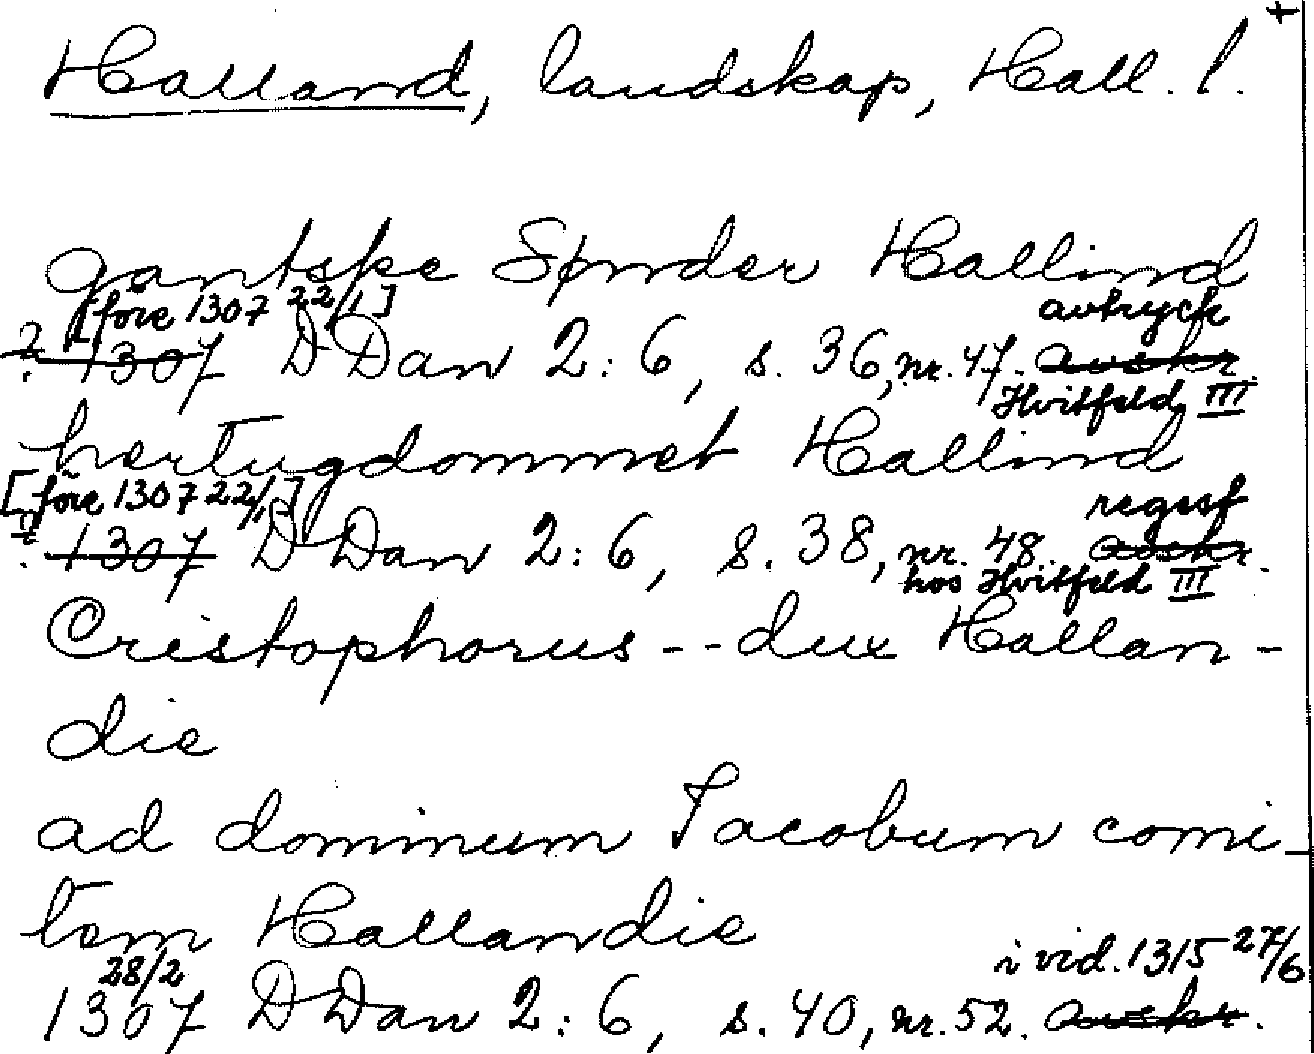 +
Halland, landskap, Hall. l.
gantske Sønder Hallind
[före 1307 22/1] avtryck
? 1307 D Dan 2:6, s. 36, nr. 47. avskr.
Hvitfeld III
hertugdommet Hallind
[före 1307 22/1] regest
? 1307 D Dan 2:6, s. 38, nr. 48. avskr.
hos Hvitfeld III
Cristophorus -- dux Hallan-
die
ad dominum Jacobum comi-
tem Hallandie
28/2 i vid. 1315 27/6
1307 D Dan 2:6, s. 40, nr. 52. avskr.